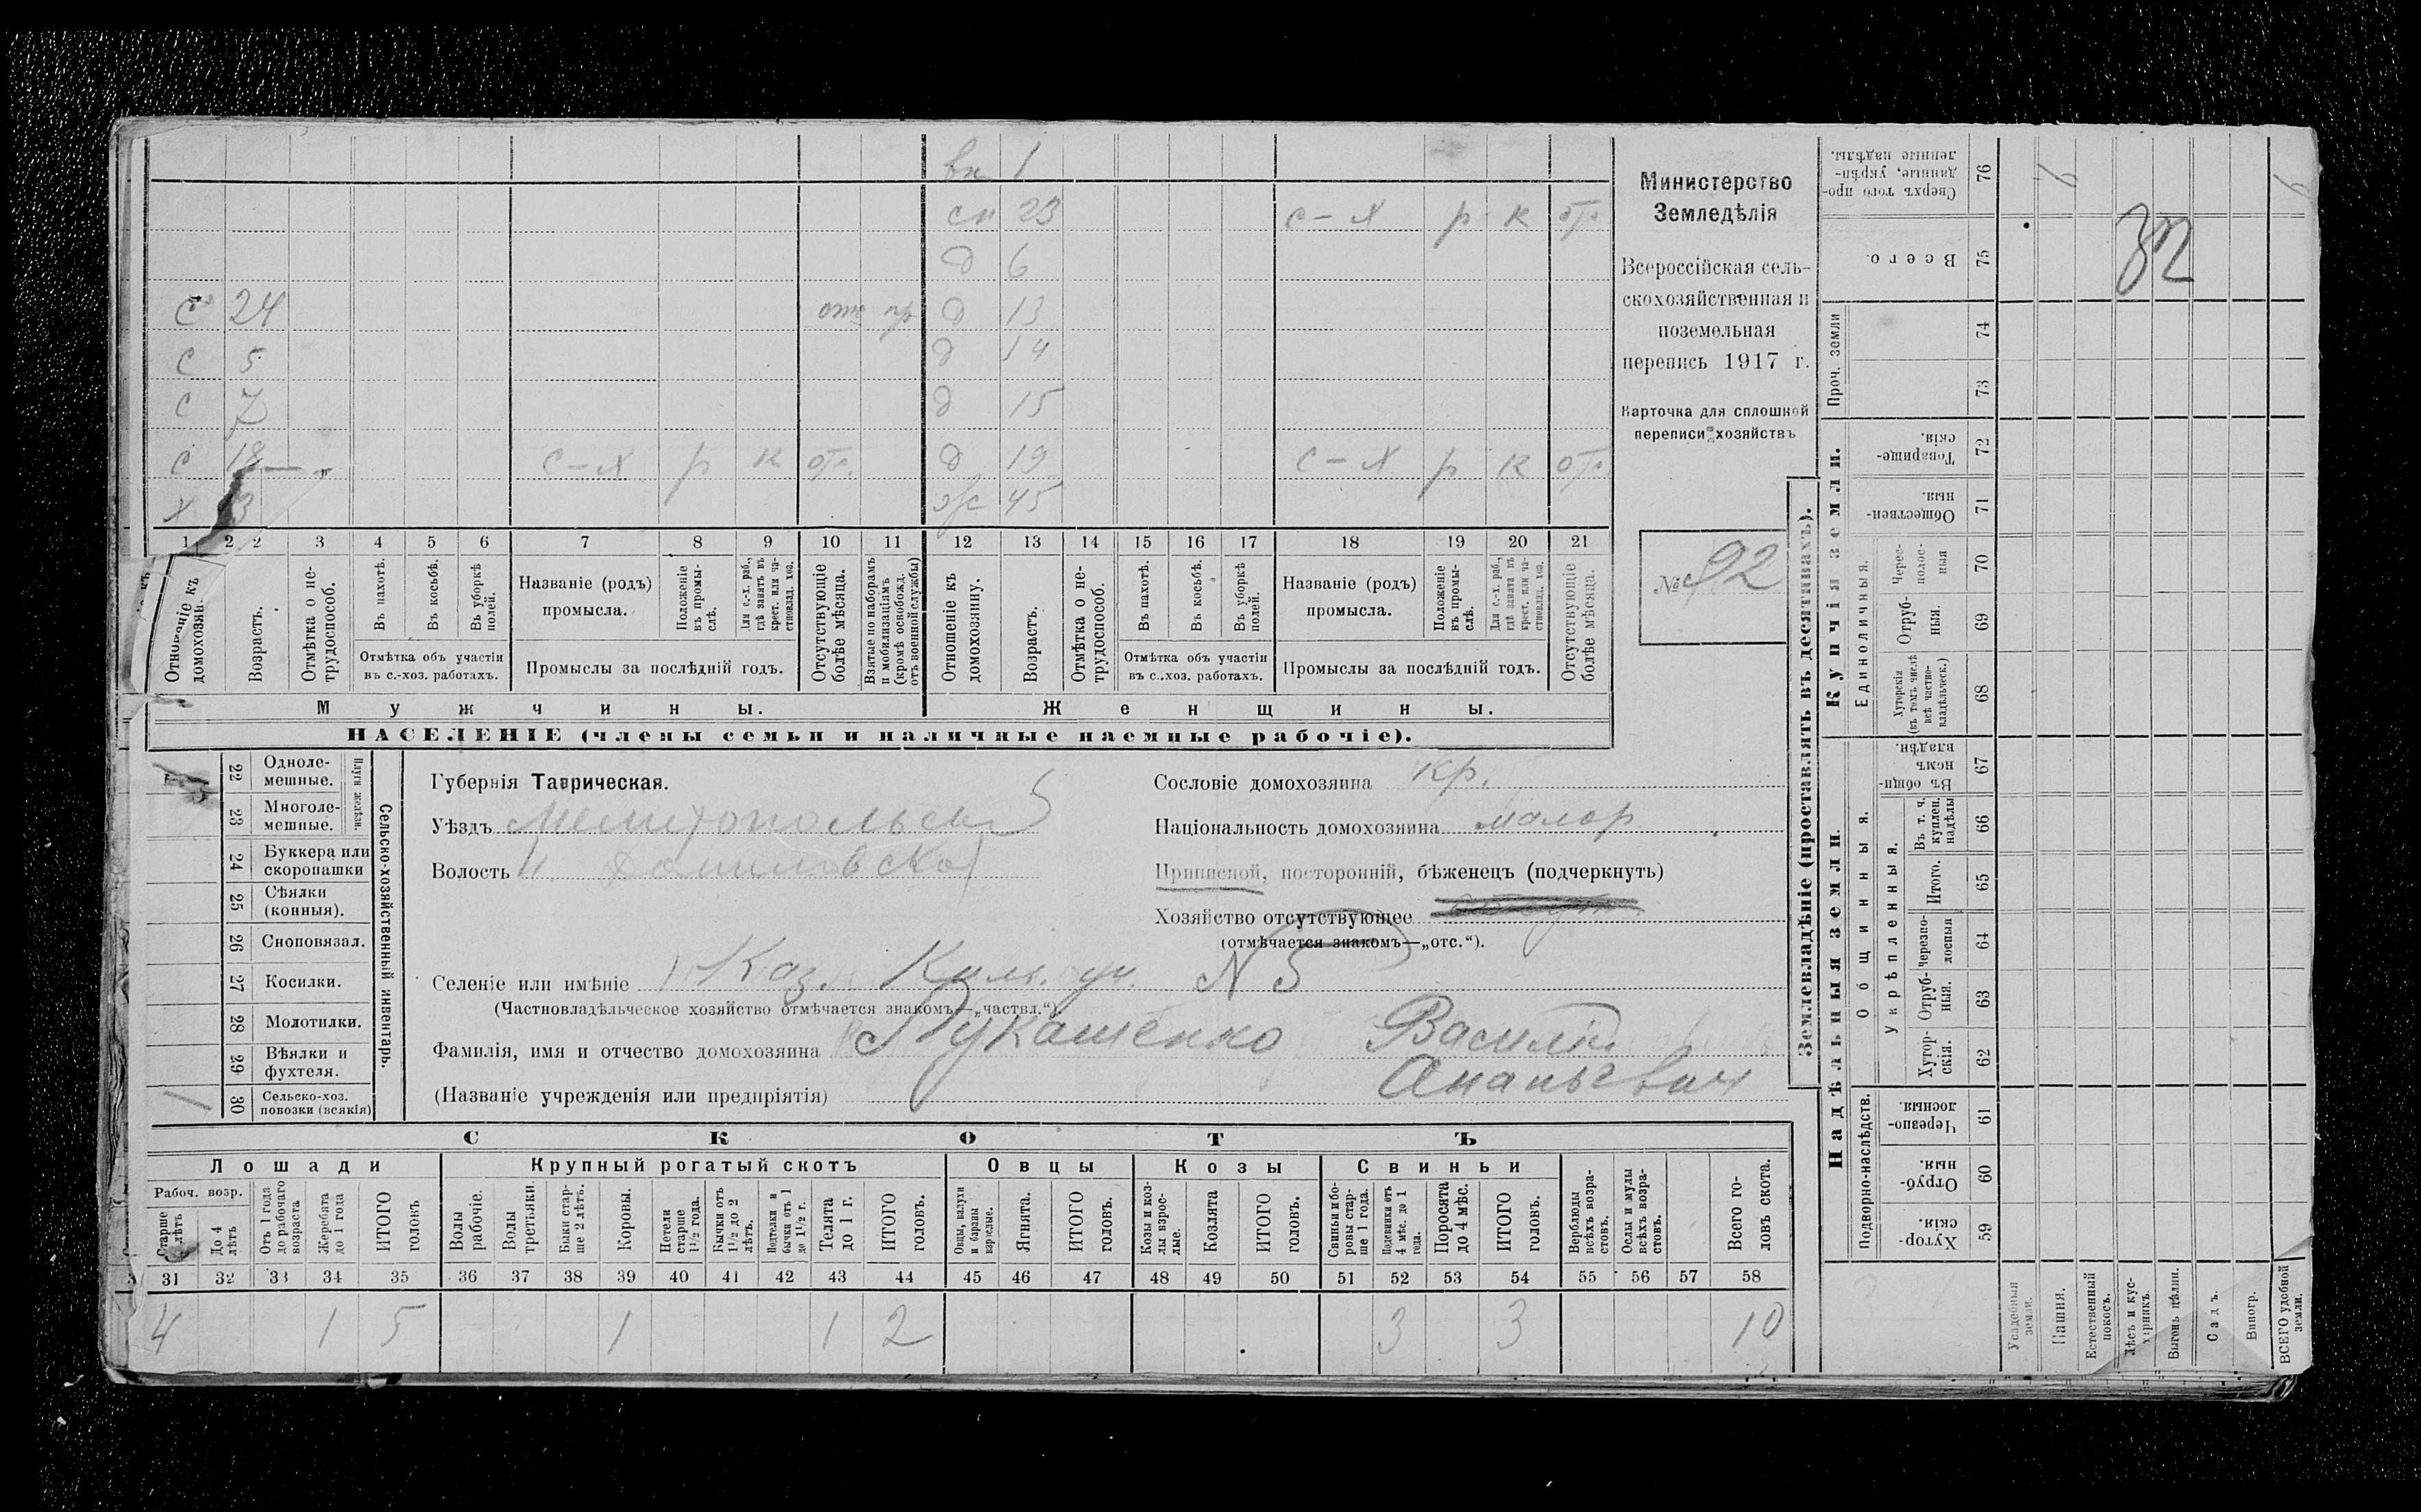 вн 1
сн 23 с-х р к отс
д 6
с 24 отс пр д 13
с 5 д 14
с 7 д 15
с 18 с-х р к отс. д 19 с-х р к отс
х ж 45
1 2 2 3 4 5 6 7 8 9 10 11 12 13 14 15 16 17 18 19 20 21
Отношеніе къ домохозяи.
Возрастъ.
Отмѣтка о не-
трудоспособ.
Въ пахотѣ.
Въ косьбѣ.
Въ уборкѣ
полей.
Отмѣтка объ участіи
въ с.-хоз. работахъ.
Названіе (родъ)
промысла.
Положеніе
въ промы-
слѣ.
Для с.-х. раб.,
гдѣ занятъ въ
крест. или ча-
стновлад. хоз.
Промыслы за послѣдній годъ.
Отсутствующіе
болѣе мѣсяца.
Взятые по наборамъ
и мобилизаціямъ
(кромѣ освобожд.
отъ военной службы)
Отношеніе къ
домохозяину.
Возрастъ.
Отмѣтка о не-
трудоспособ.
Въ пахотѣ.
Въ косьбѣ.
Въ уборкѣ
полей.
Отмѣтка объ участіи
въ с..хоз. работахъ.
Названіе (родъ)
промысла.
Положеніе
въ промы-
слѣ.
Для с.-х. раб.,
гдѣ занята въ
крест. или ча-
стновлад. хоз.
Промыслы за послѣдній годъ.
Отсутствующіе
болѣе мѣсяца.
Мужчины.
Женщины.
НАСЕЛЕНІЕ (члены семьи и наличные наемные рабочіе).
Министерство
Земледѣлія
Всероссійская сель-
скохозяйственная и
поземельная
перепись 1917 г.
Карточка для сплошной
переписи хозяйствъ
№ 92
22 Одноле-
мешные.
23 Многоле-
мешные.
Плуги желѣзн.
24 Буккера или
скоропашки
25 Сѣялки
(конныя).
26 Сноповязал.
27 Косилки.
28 Молотилки.
29 Вѣялки и
фухтеля.
1 30 Сельско-хоз.
повозки (всякія)
Сельско-хозяйственный инвентарь.
Губернія Таврическая.
Уѣздъ Мелитопольскій
Волость Н. Даниловская
Сословіе домохозяина кр.
Національность домохозяина малор
Приписной, посторонній, бѣженецъ (подчеркнуть)
Хозяйство отсутствующее
(отмѣчается знакомъ—„отс.“).
Селеніе или имѣніе Каз. Куль. уч. N 5
(Частновладѣльческое хозяйство отмѣчается знакомъ—„частвл.“).
Фамилія, имя и отчество домохозяина Лукашенко Василій
Ананьевич
(Названіе учрежденія или предпріятія)
СКОТЪ
Лошади
Крупный рогатый скотъ
Овцы
Козы
Свиньи
Рабоч. возр.
Старше
лѣтъ
До 4
лѣтъ
Отъ 1 года
до рабочаго
возраста
Жеребята
до 1 года
ИТОГО
головъ
Волы
рабочіе.
Волы
третьяки.
Быки стар-
ше 2 лѣтъ.
Коровы.
Нетели
старше
1 1/2 года.
Бычки отъ
1 1/2 до 2
лѣтъ.
Подтелки и
бычки отъ 1
до 1 1/2 г.
Телята
до 1 г.
ИТОГО
головъ.
Овцы, валухи
и бараны
взрослые.
Ягнята.
ИТОГО
головъ.
Козы и коз-
лы взрос-
лые.
Козлята
ИТОГО
головъ.
Свиньи и бо-
ровы стар-
ше 1 года.
Подсвинки отъ
4 мѣс. до 1
года.
Поросята
до 4 мѣс.
ИТОГО
головъ.
Верблюды
всѣхъ возра-
стовъ.
Ослы и мулы
всѣхъ возра-
стовъ.
Всего го-
ловъ скота.
31 32 33 34 35 36 37 38 39 40 41 42 43 44 45 46 47 48 49 50 51 52 53 54 55 56 57 58
4 1 5 1 1 2 3 3 10
Землевладѣніе (проставлять въ десятинахъ).
Надѣльныя земли.
Купчія земли.
Проч. земли
Подворно-наслѣдств.
Общинныя.
Укрѣпленныя.
Единоличныя.
Сверхъ того про-
данные, укрѣп-
ленные надѣлы.
76
Всего.
75
74
73
Товарище-
скія.
72
Обществен-
ныя.
71
Черес-
полос-
ныя
70
Отруб-
ныя.
69
Хуторскія
(въ томъ числѣ
всѣ частно-
владѣльческ.)
68
Въ общи-
номъ
владѣн.
67
Въ т. ч.
куплен.
надѣлы
66
Итого.
65
Черезпо-
лосныя
64
Отруб-
ныя.
63
Хутор-
скія.
62
Черезпо-
лосныя.
61
Отруб-
ныя.
60
Хутор-
скія.
59
Усадебныя
земли.
Пашня.
Естественный
покосъ.
Лѣсъ и кус-
тарникъ.
Выгонъ цѣлин.
Садъ.
Виногр.
ВСЕГО удобной
земли.
6
32
6